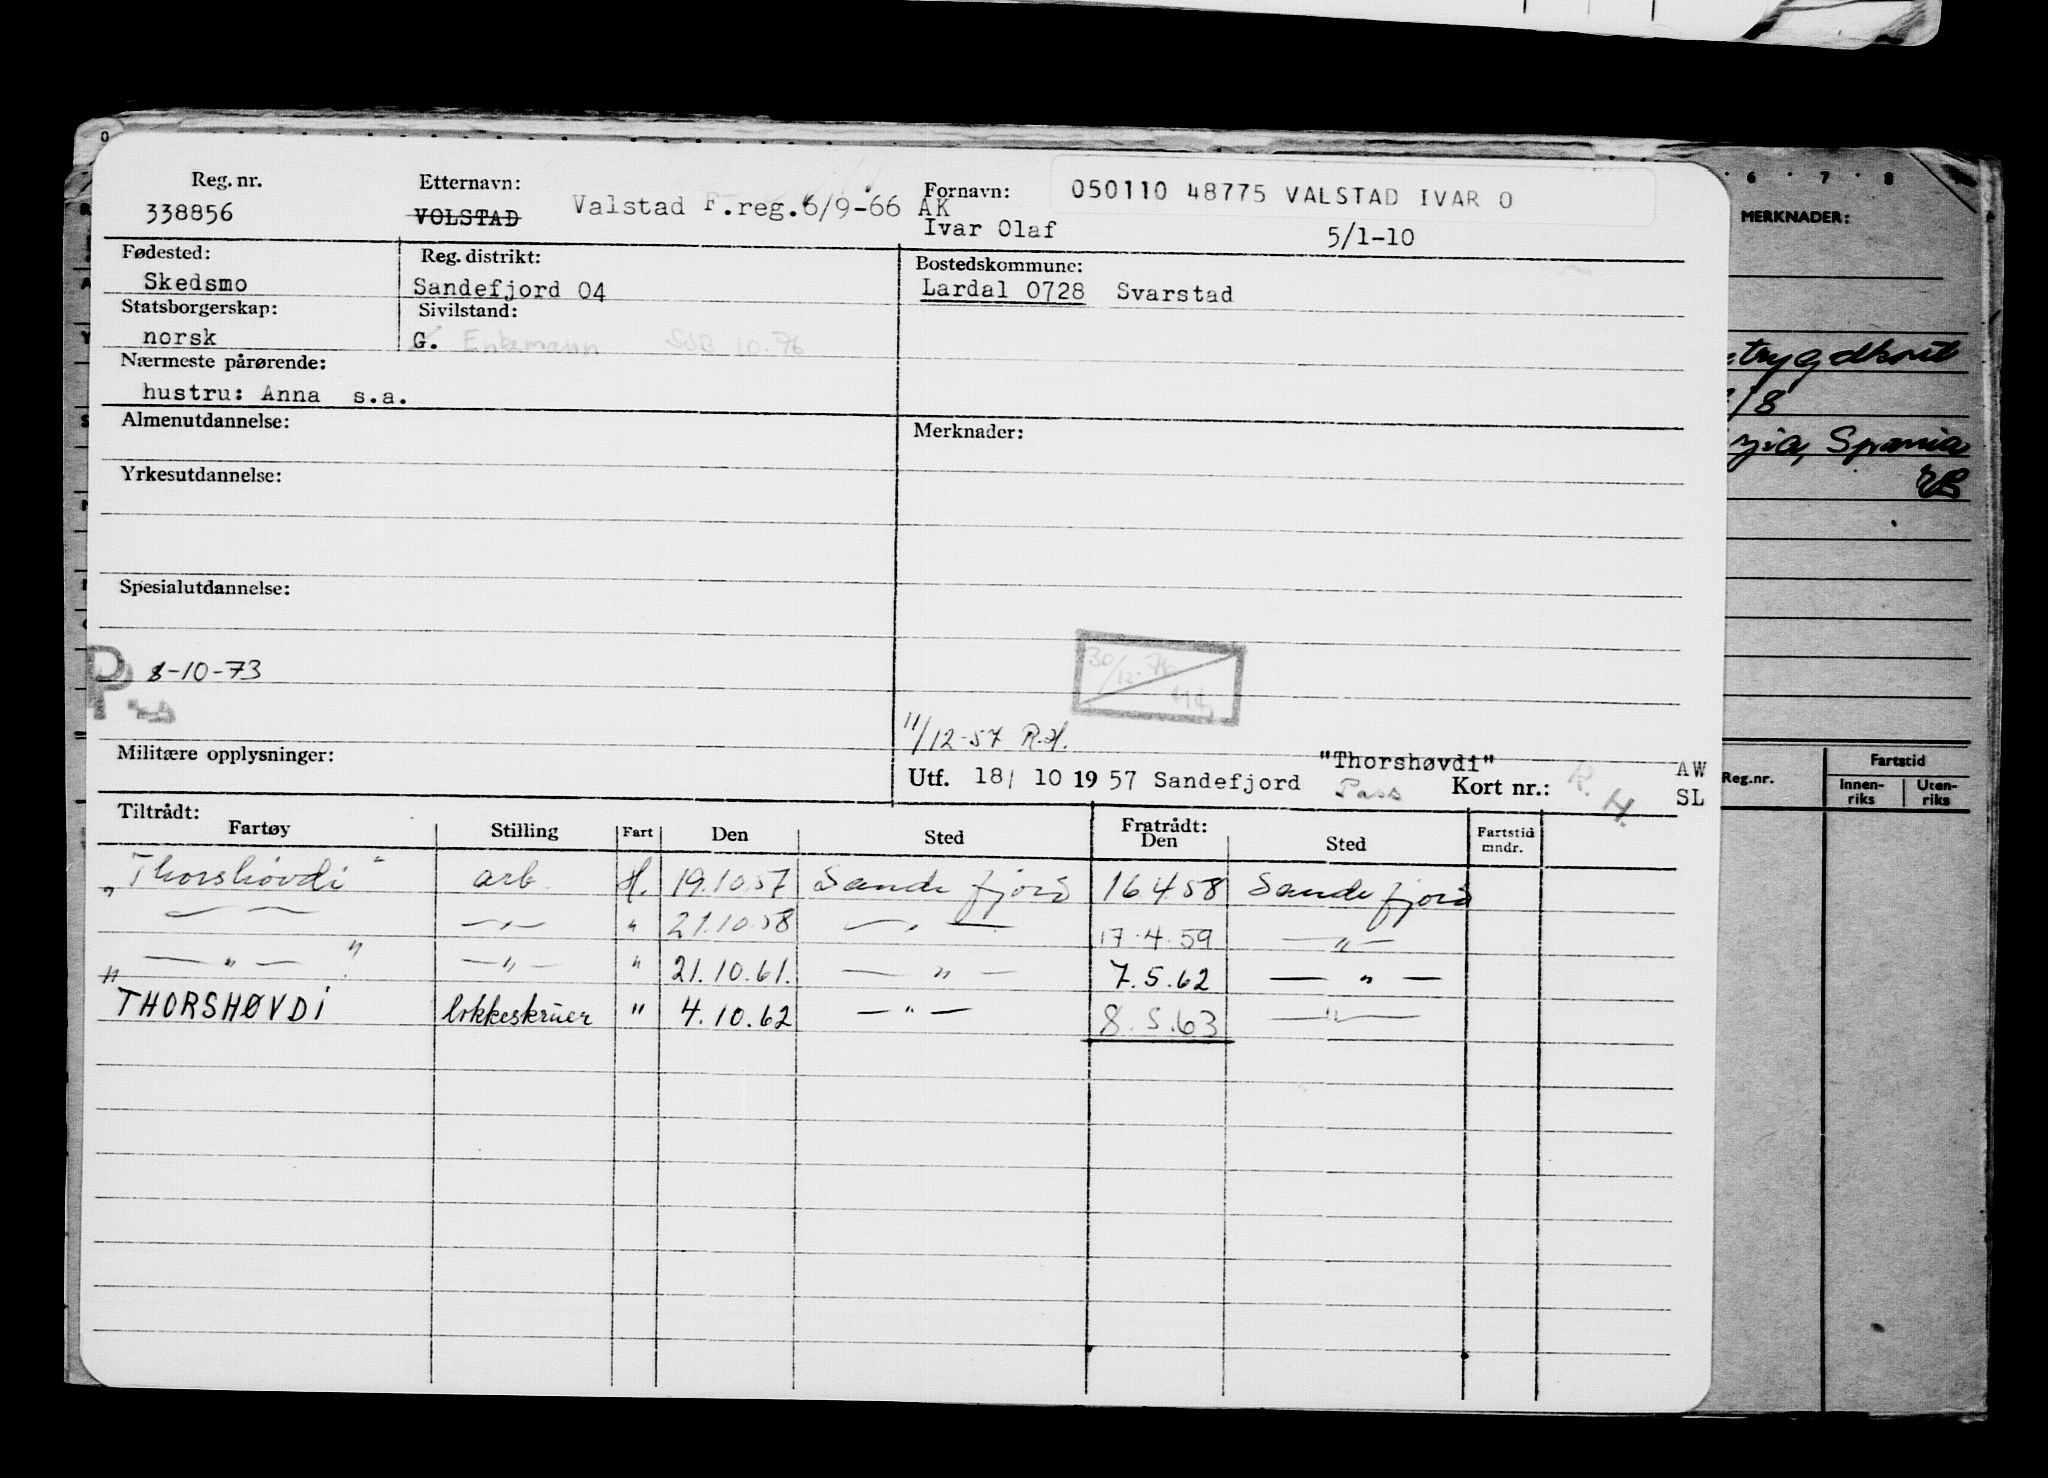 Reg. nr. Etternavn: Fornavn: 050110 48775 VALSTAD IVAR O
338856 VOLSTAD Valstad F.reg.6/9-66 AK Ivar Olaf 5/1-10
Fødested: Reg. distrikt: Bostedskommune:
Skedsmo Sandefjord 04 Lardal 0728 Svarstad
Statsborgerskap: Sivilstand:
norsk G. Enkemann SSB 10-76
Nærmeste pårørende:
hustru: Anna s.a.
Almenutdannelse: Merknader:
Yrkesutdannelse:
Spesialutdannelse:
P 8-10-73
30/12-76
11/12-57 R.H.
Militære opplysninger: Utf. 18/ 10 1957 Sandefjord "Thorshøvdi" Pass Kort nr.: R.H. AW SL
Tiltrådt: Fratrådt:
Fartøy Stilling Fart Den Sted Den Sted Fartstid mndr.
"Thorshøvdi" arb. H. 19.10.57 Sandefjord 16.4.58 Sandefjord
— " — — " — " 21.10.58 — " — 17.4.59 — " —
— " — — " — " 21.10.61. — " — 7.5.62 — " —
"THORSHØVDI" lokkeskruer " 4.10.62 — " — 8.5.63 — " —
6 7 8
MERKNADER:
trygdkont
/8
Spania
Reg.nr. Fartstid
Innen-riks Uten-riks